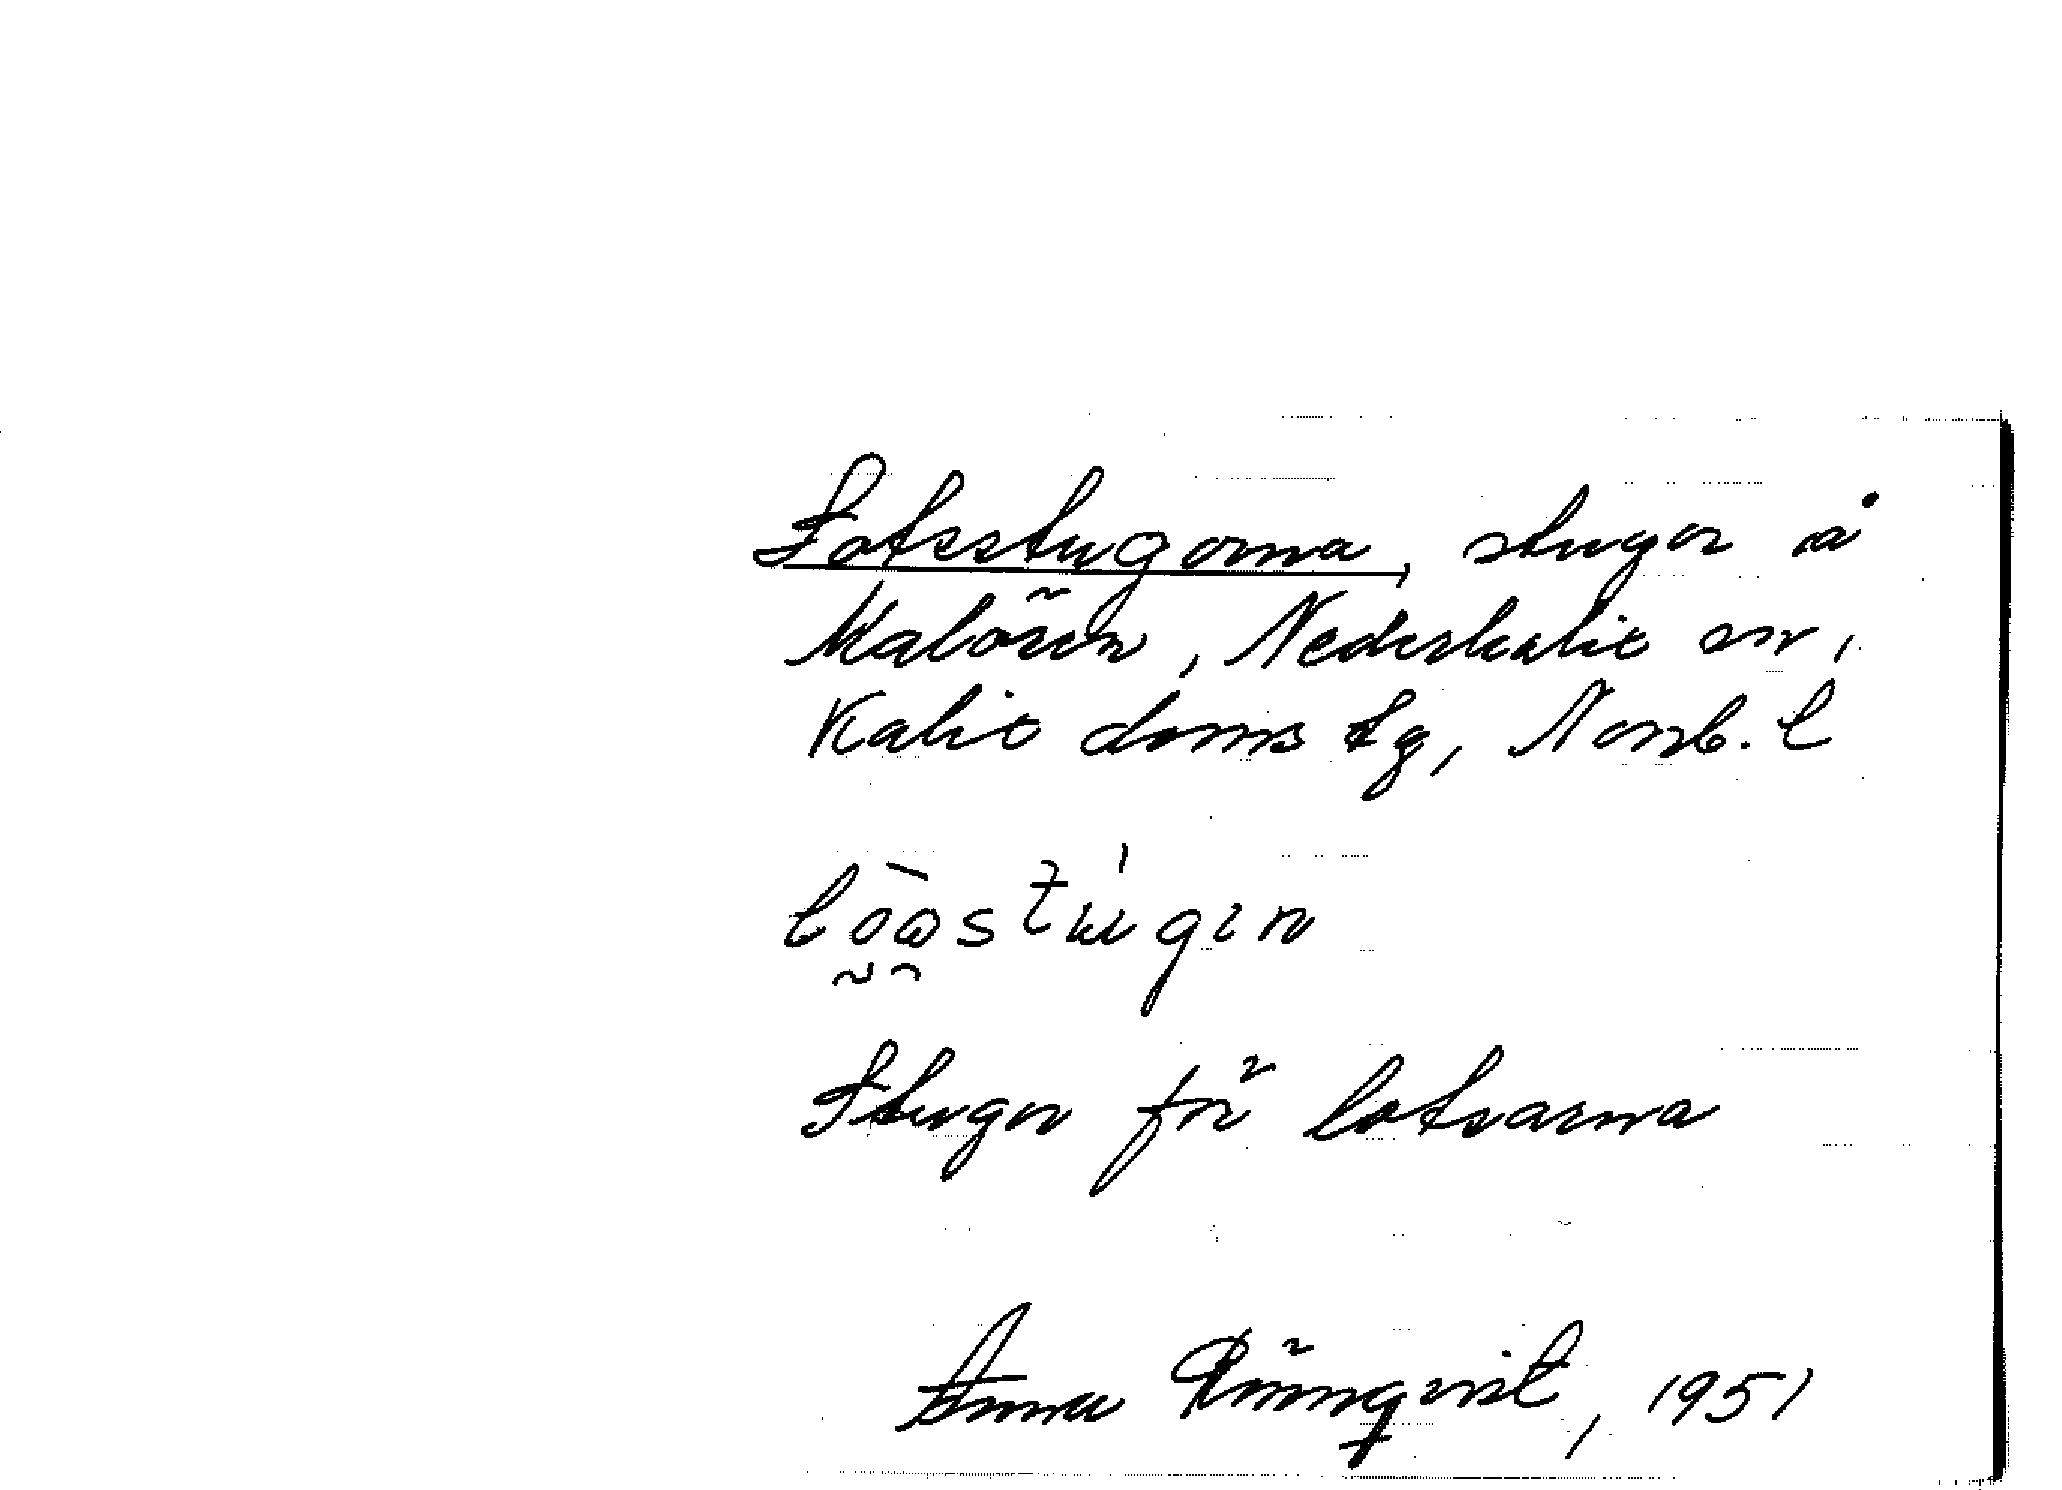 Lotsstugorna, stugor å
Malören, Nederkalix sn,
Kalix doms tg, Norrb. l
Stugor för lotsarna
Anna Rönnqvist, 1951